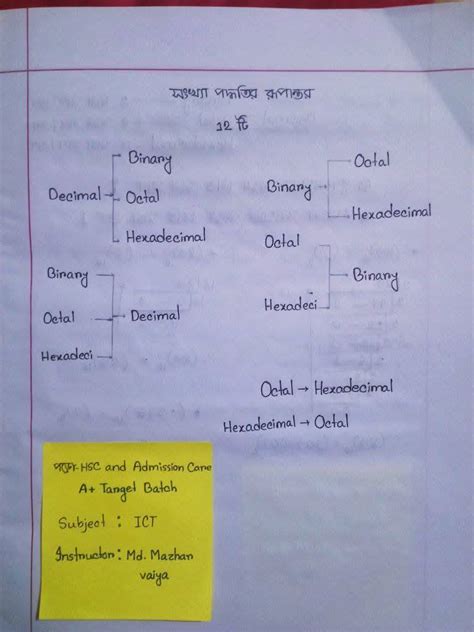 সংখ্যা পদ্ধতির রূপান্তর
১২ টি
Binary
Decimal → Octal
Hexadecimal
Binary
Octal → Decimal
Hexadeci
Octal
Binary
Hexadecimal
Octal
Binary
Hexadeci
Octal → Hexadecimal
Hexadecimal → Octal
HSC and Admission Cane
A+ Tanget Batch
Subject : ICT
Instructon : Md. Mazhan
vaiya